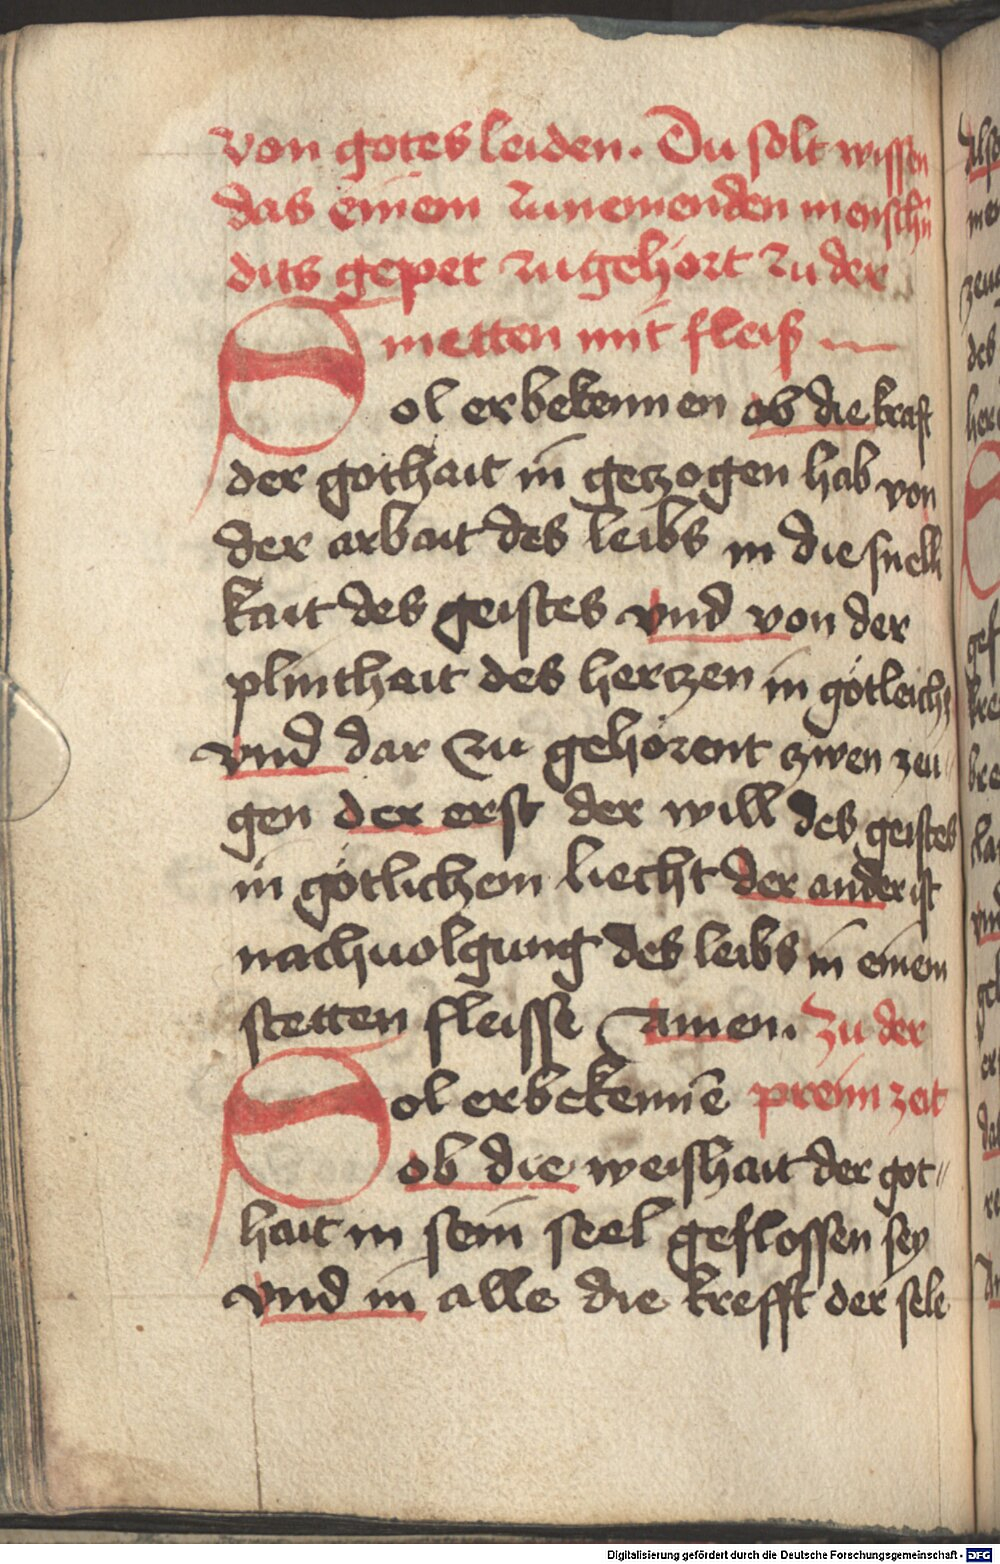 von gotes leiden. Du solt wissen
das einem zunemenden menschn̄
dits gepet zugehört zu der
metten mit fleiß
Sol er bekennen ob die kraft
der gothait in gezogen hab von
der arbait des leibs in die snelli
kait des geistes vnd von der
plinthait des herczen in götleichs
vnd dar zu gehörent zwen zeu⸗
gen der erst der will des geistes
in götlichem liecht der ander ist
nachuolgung des leibs in einem
stetten fleisse Amen. Zu der
Sol er bekennē preim zeit
ob die weishait der got⸗
hait in sein seel geflossen sey
vnd in alle die krefft der sele
Digitalisierung gefördert durch die Deutsche Forschungsgemeinschaft - DFG